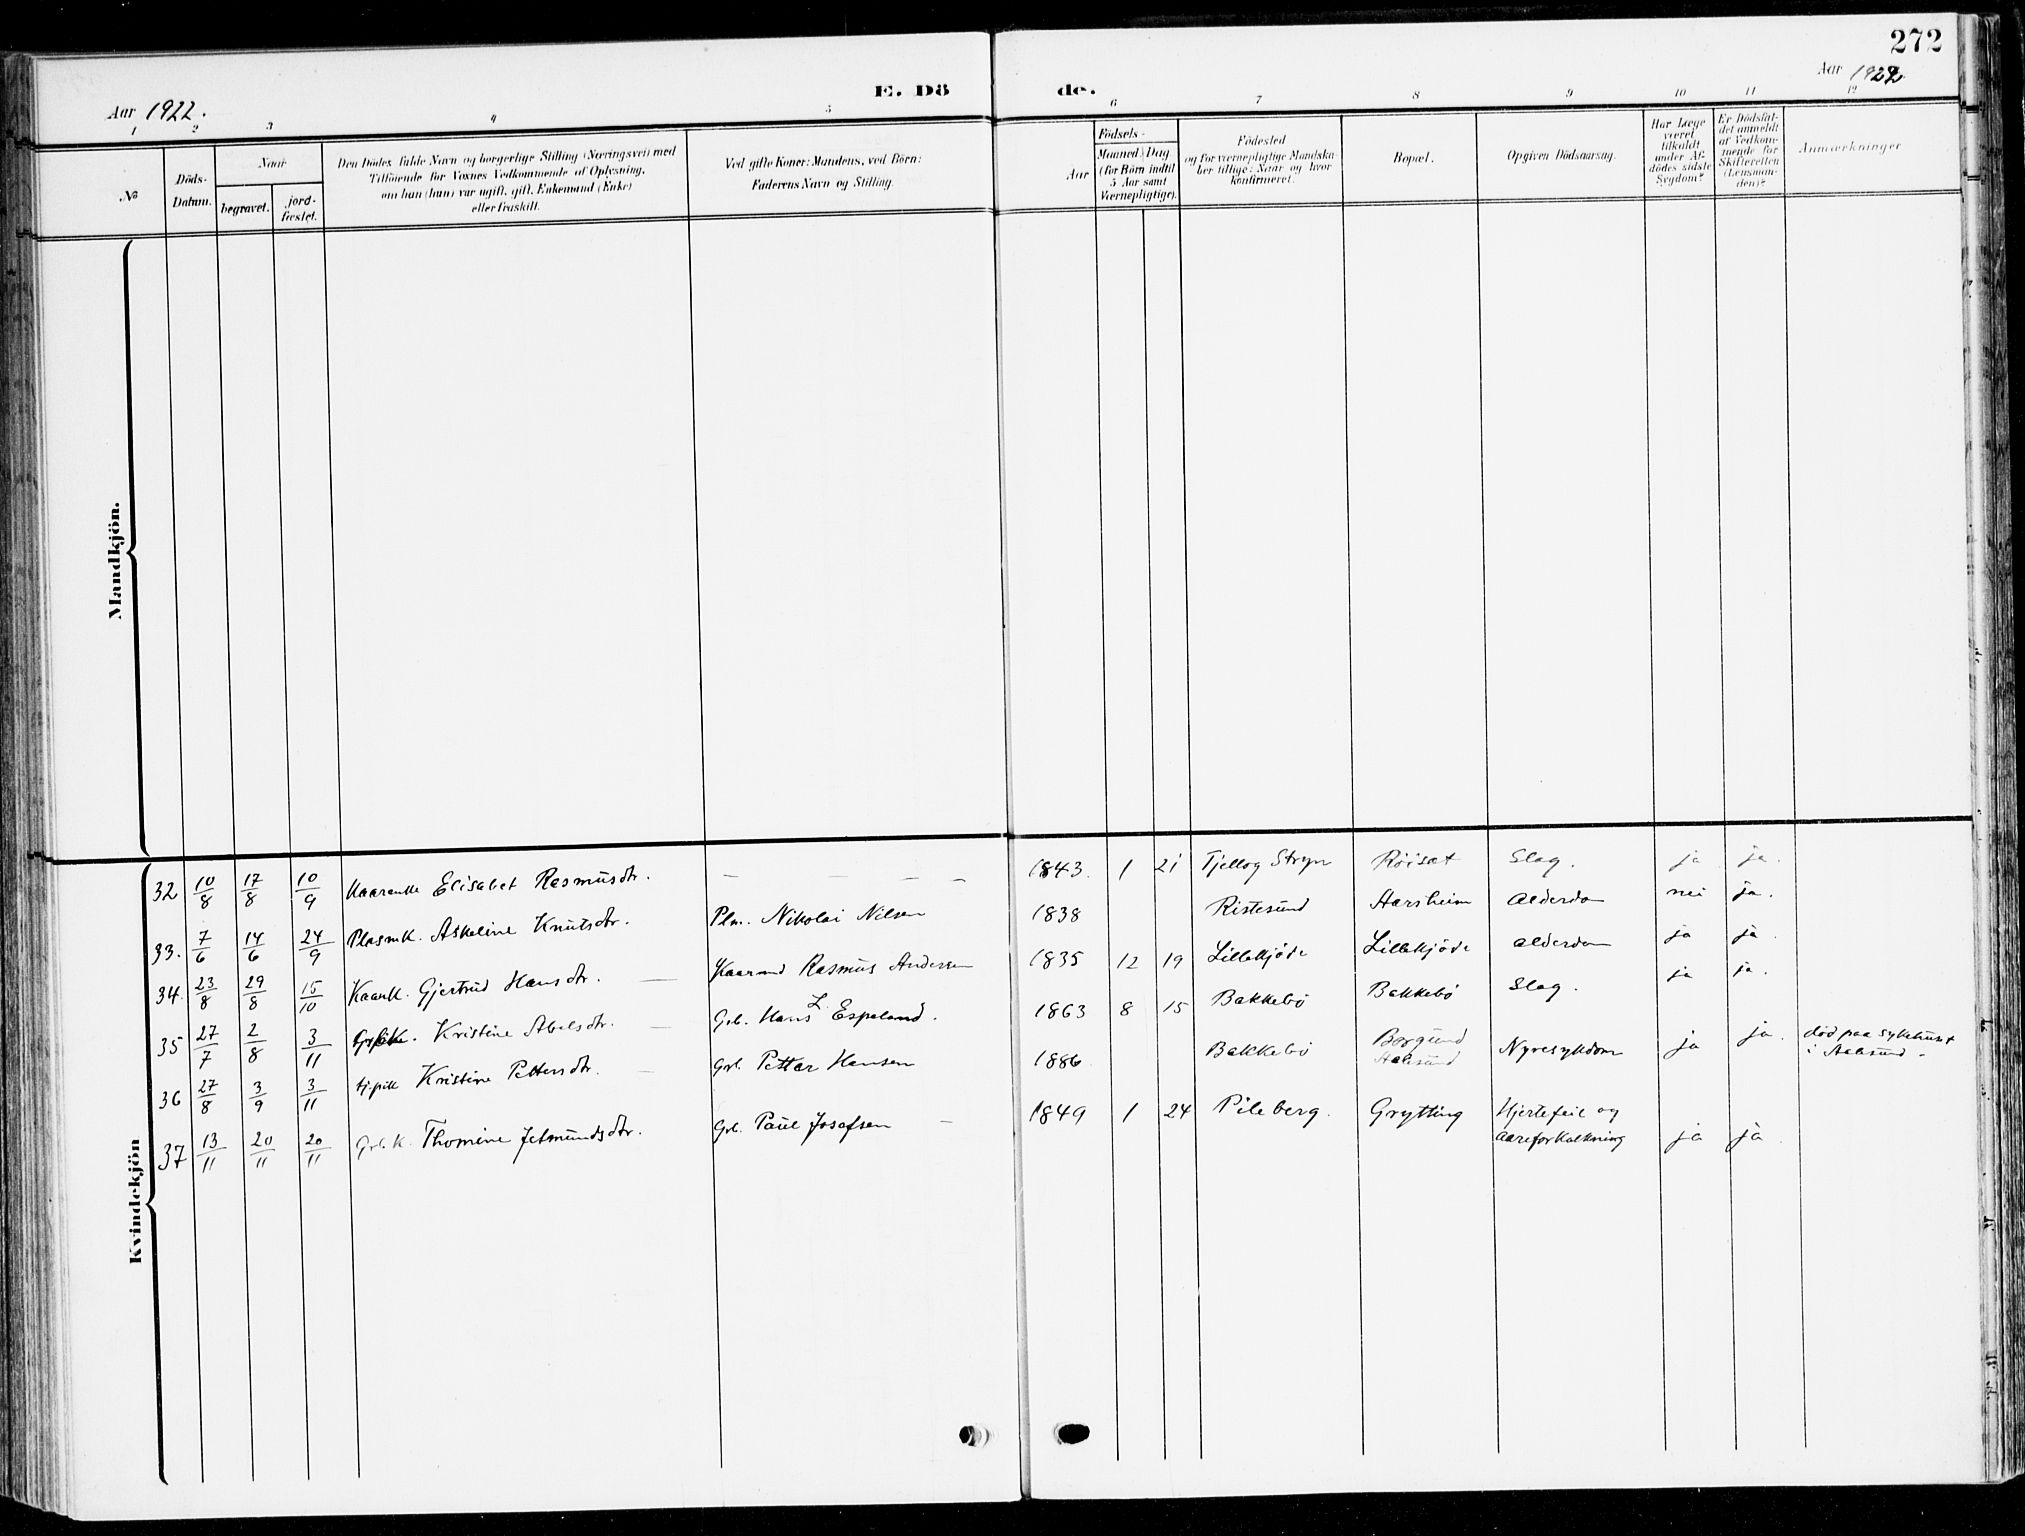 272
Aar 1922.
E. Dö
de.
Aar 1922
1 2 3 4 5 6 7 8 9 10 11 12
No
Döds-
Datum.
Naar
begravet.
jord-
fæstet.
Den Dödes fulde Navn og borgerlige Stilling (Næringsvei) med
Tilföiende for Voxnes Vedkommende af Oplysning,
om han (hun) var ugift, gift, Enkemand (Enke)
eller fraskilt.
Ved gifte Koner: Mandens, ved Börn:
Faderens Navn og Stilling.
Födsels-
Aar
Maaned
Dag
(for Börn indtil
5 Aar samt
Værnepligtige).
Födested
og for værnepligtige Mandska-
ber tillige: Naar og hvor
konfirmeret.
Bopæl.
Opgiven Dödsaarsag.
Har Læge
været
tilkaldt
under Af-
dödes sidste
Sygdom?
Er Dödsfal-
det anmeldt
af Vedkom-
mende for
Skifteretten
(Lensman-
den)?
Anmærkninger
Mandkjön.
Kvindekjön
32 10/8 17/8 10/9 Kaarenke Elisabet Rasmusdtr. — — — — 1843. 1 21 Tjellog Stryn Röiset Slag. ja ja.
33. 7/6 14/6 24/9 Plasmk. Askeline Knutsdtr. Plm. Nikolai Nilsen 1838 Ristesund Aarsheim Alderdom nei ja.
34. 23/8 29/8 15/10 Kaark. Gjertrud Hansdtr. — Kaarmd Rasmus Andersen 1835 12 19 Lillekjöde Lillekjöde alderdom ja ja.
35 27/7 2/8 3/11 Kristine Abelsdtr. — Grb. Hans L. Espeland. 1863 8 15 Bakkebö Bakkebö Slag. ja ja.
36 27/8 3/9 3/11 tj.pik Kristine Pettersdtr. — Grb. Petter Hansen 1886 Bakkebö Borgund Aalesund Nyresykdom ja ja. död paa sykehuset
i Aalesund.
37 13/11 20/11 20/11 Grb.k. Thomine Jetmundsdtr. Grb. Paul Josefsen — 1849 1 24 Pileberg. Grytting Hjertefeil og
aareforkalkning ja ja.